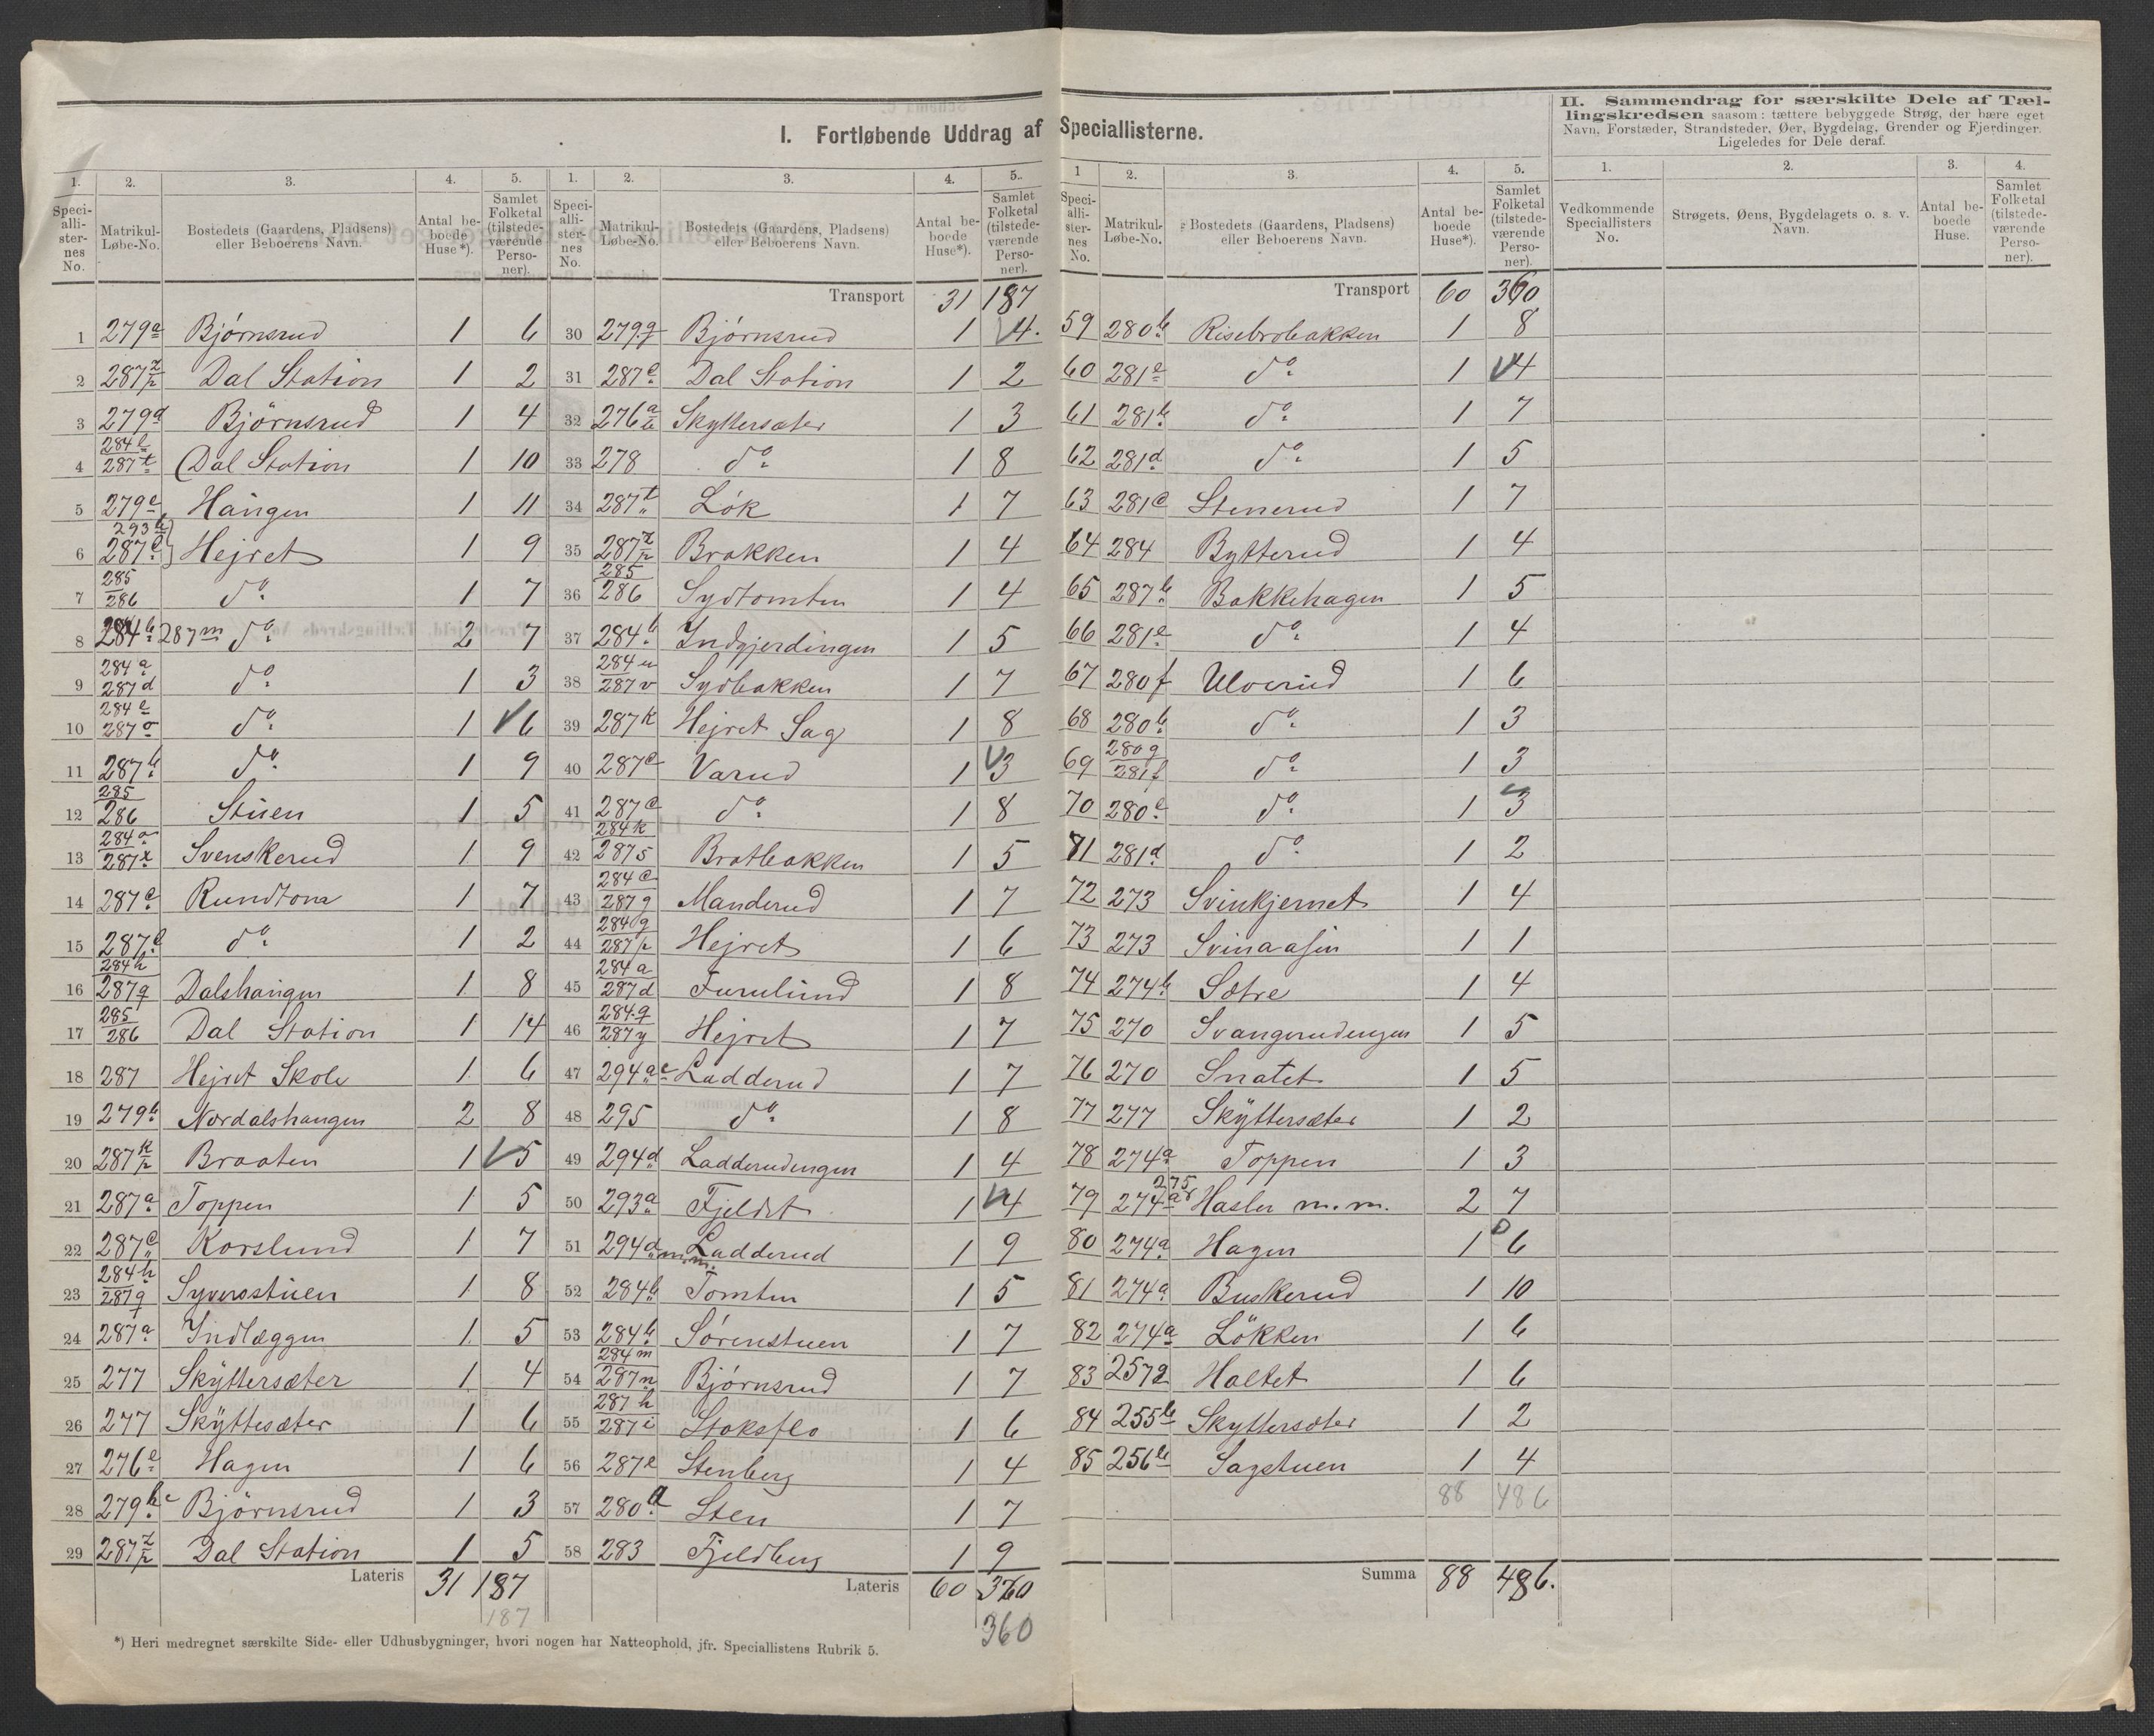 I. Fortløbende Uddrag af Speciallisterne.
II. Sammendrag for særskilte Dele af Tæl-
lingskredsen saasom: tættere bebyggede Strøg, der bære eget
Navn, Forstæder, Strandsteder, Øer, Bygdelag, Grender og Fjerdinger.
Ligeledes for Dele deraf.
1. 2. 3. 4. 5.
Speci-alli-ster-nes No. Matrikul-Løbe-No. Bostedets (Gaardens, Pladsens) eller Beboerens Navn. Antal be-boede Huse*). Samlet Folketal (tilstede-værende Perso-ner).
1 279a Bjórnsrud 1 6
2 287z/p Dal Station 1 2
3 279d Björnsrud 1 4
4 284l/287t Dal Station 1 10
5 279e Haugen 1 11
6 293b/287l Hejret 1 9
7 285/286 do 1 7
8 284b 287m do 2 7
9 284a/287d do 1 3
10 284e/287o do 1 6
11 287b do 1 9
12 285/286 Stuen 1 5
13 284o/287x Svenskerud 1 9
14 287c Rundtom 1 7
15 287c do 1 2
16 284h/287q Dalshaugen 1 8
17 285/286 Dal Station 1 14
18 287 Hejret Skole 1 6
19 279b Nordalshaugen 2 8
20 287k/p Braaten 1 5
21 287a Toppen 1 5
22 287c Korslund 1 7
23 284h/287q Syversstuen 1 8
24 287a Indlæggen 1 5
25 277 Skyttersæter 1 4
26 277 Skyttesæter 1 6
27 276e Hagen 1 6
28 279b Björnsrud 1 3
29 287z/p Dal Station 1 5
Lateris 31 187
187
1. 2. 3. 4. 5.
Speci-alli-ster-nes No. Matrikul-Løbe-No. Bostedets (Gaardens, Pladsens) eller Beboerens Navn. Antal be-boede Huse*). Samlet Folketal (tilstede-værende Perso-ner).
Transport 31 187
30 279g Bjórnsrud 1 4.
31 287c Dal Station 1 2
32 276a Skyttersæter 1 3
33 278 do 1 8
34 287t Lók 1 7
35 287z/p Brakken 1 4
36 285/286 Sydtomten 1 4
37 284b Indgjerdingen 1 5
38 284u/287v Sydbakken 1 7
39 287k Hejret Sag 1 8
40 287c Varud 1 3
41 287c do 1 8
42 284k/287s Bratbakken 1 5
43 284c/287g Manderud 1 7
44 284g/287p Hejret 1 6
45 284a/287d Furulund 1 8
46 284q/287y Hejret 1 7
47 294a e Ladderud 1 7
48 295 do 1 8
49 294d Ladderudengen 1 4
50 293a Fjeldet 1 4
51 294d m.m. Ladderud 1 9
52 284b Tomten 1 5
53 284b Sórenstuen 1 7
54 284m/287n Bjórnsrud 1 7
55 287h/287i Stoksflo 1 6
56 287e Stenberg 1 4
57 280a Sten 1 7
58 283 Fjeldberg 1 9
Lateris 60 360
360
1 2. 3. 4. 5.
Speci-alli-ster-nes No. Matrikul-Løbe-No. Bostedets (Gaardens, Pladsens) eller Beboerens Navn. Antal be-boede Huse*). Samlet Folketal (tilstede-værende Perso-ner).
Transport 60 360
59 280b Risebrobakken 1 8
60 281e do 1 4
61 281b do 1 7
62 281d do 1 5
63 281c Stenerud 1 7
64 284 Bytterud 1 4
65 287b Bakkehagen 1 5
66 281e do 1 4
67 280f Ulverud 1 6
68 280b do 1 3
69 280g/281f do 1 3
70 280e do 1 3
71 281d do 1 2
72 273 Svinkjernet 1 4
73 273 Svinaasen 1 1
74 274b Sætre 1 4
75 270 Svangerudengen 1 5
76 270 Snatet 1 5
77 277 Skyttersæter 1 2
78 274a Toppen 1 3
79 275 274a Hasler m.m. 2 7
80 274a Hagen 1 6
81 274a Buskerud 1 10
82 274a Lökken 1 6
83 257a Haltet 1 6
84 255b Skyttersæter 1 2
85 256b Sagstuen 1 4
88 486
Summa 88 486.
1. 2. 3. 4.
Vedkommende Speciallisters No. Strøgets, Øens, Bygdelagets o. s. v. Navn. Antal be-boede Huse. Samlet Folketal (tilstede-værende Perso-ner).
*) Heri medregnet særskilte Side- eller Udhusbygninger, hvori nogen har Natteophold, jfr. Speciallistens Rubrik 5.